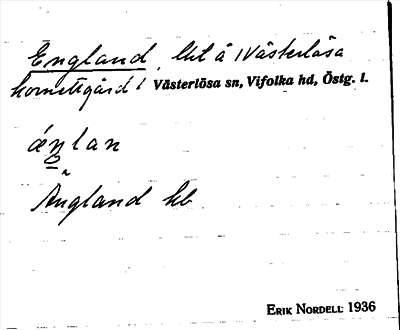 England, lht å (Västerlösa
komettgård) Västerlösa sn, Vifolka hd, Östg. l.
ä́ŋlan
Ängland hb
ERIK NORDELL 1936